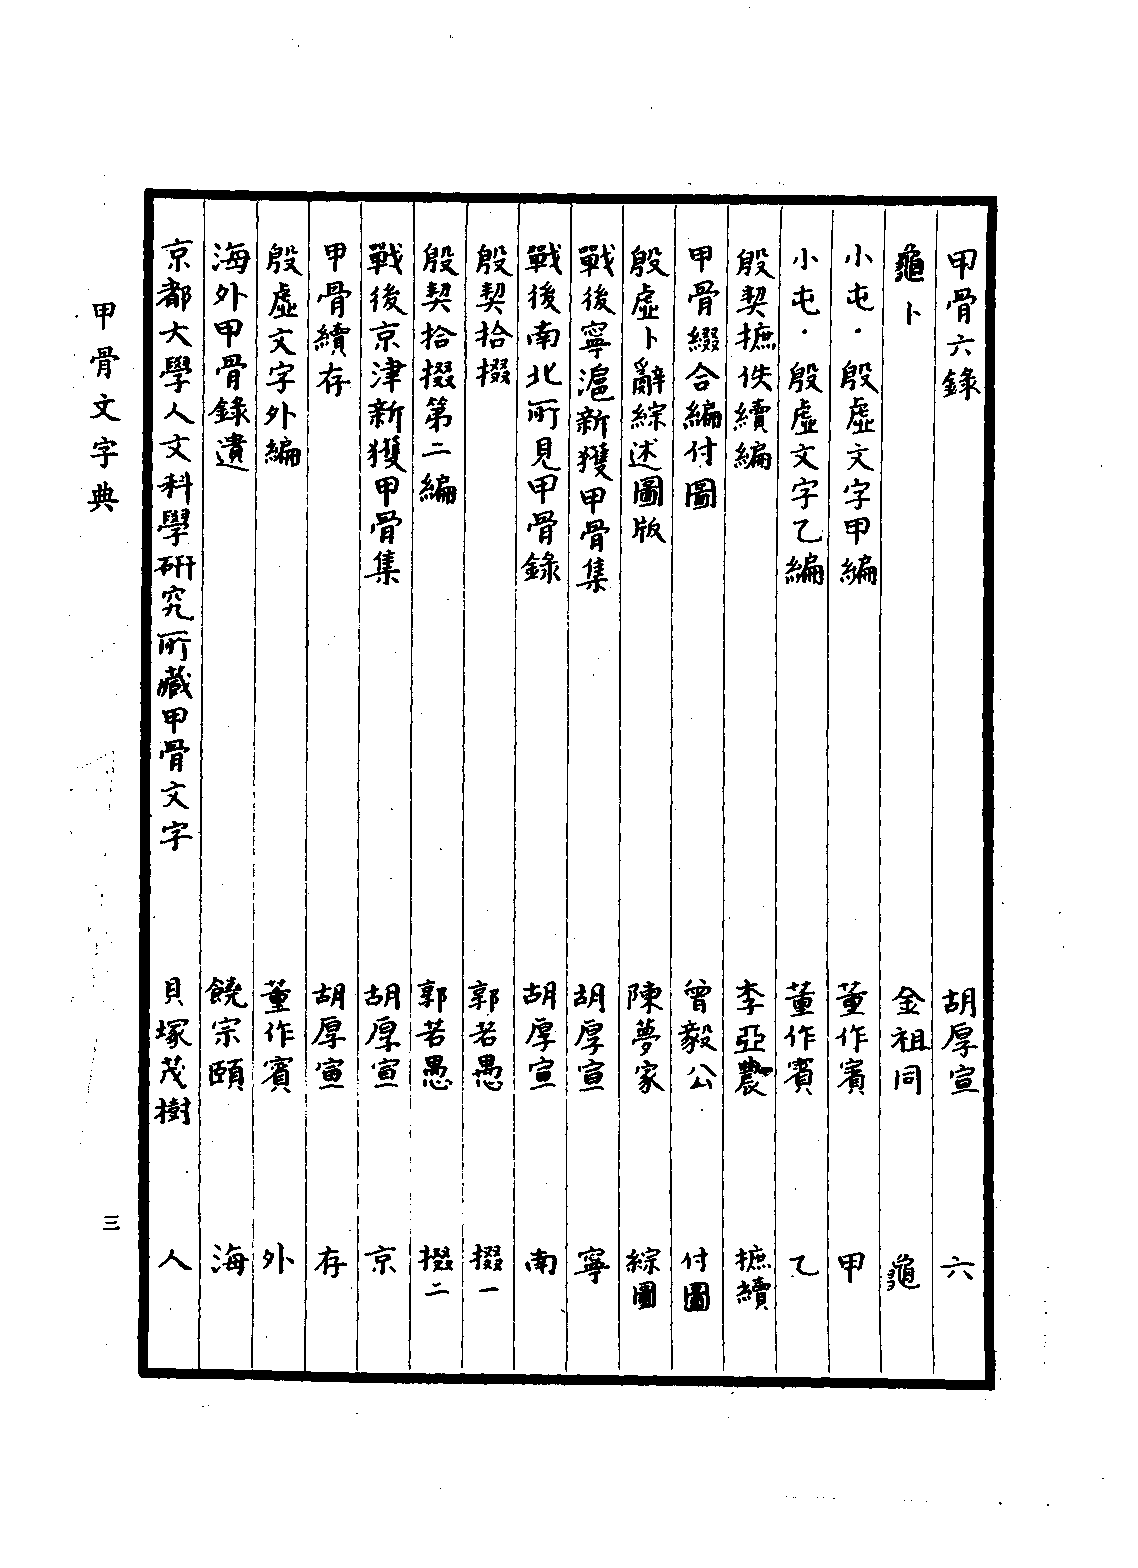 甲骨六錄　胡厚宣　六
龜卜　金祖同　龜
小屯·殷虛文字甲編　董作賓　甲
小屯·殷虛文字乙編　董作賓　乙
殷契摭佚續編　李亞農　摭續
甲骨綴合編付圖　曾毅公　付圖
殷虛卜辭綜述圖版　陳夢家　綜圖
戰後寧滬新獲甲骨集　胡厚宣　寧
戰後南北所見甲骨錄　胡厚宣　南
殷契拾掇　郭若愚　掇一
殷契拾掇第二編　郭若愚　掇二
戰後京津新獲甲骨集　胡厚宣　京
甲骨續存　胡厚宣　存
殷虛文字外編　董作賓　外
海外甲骨錄遺　饒宗頤　海
京都大學人文科學研究所藏甲骨文字　貝塚茂樹　人
甲骨文字典　三